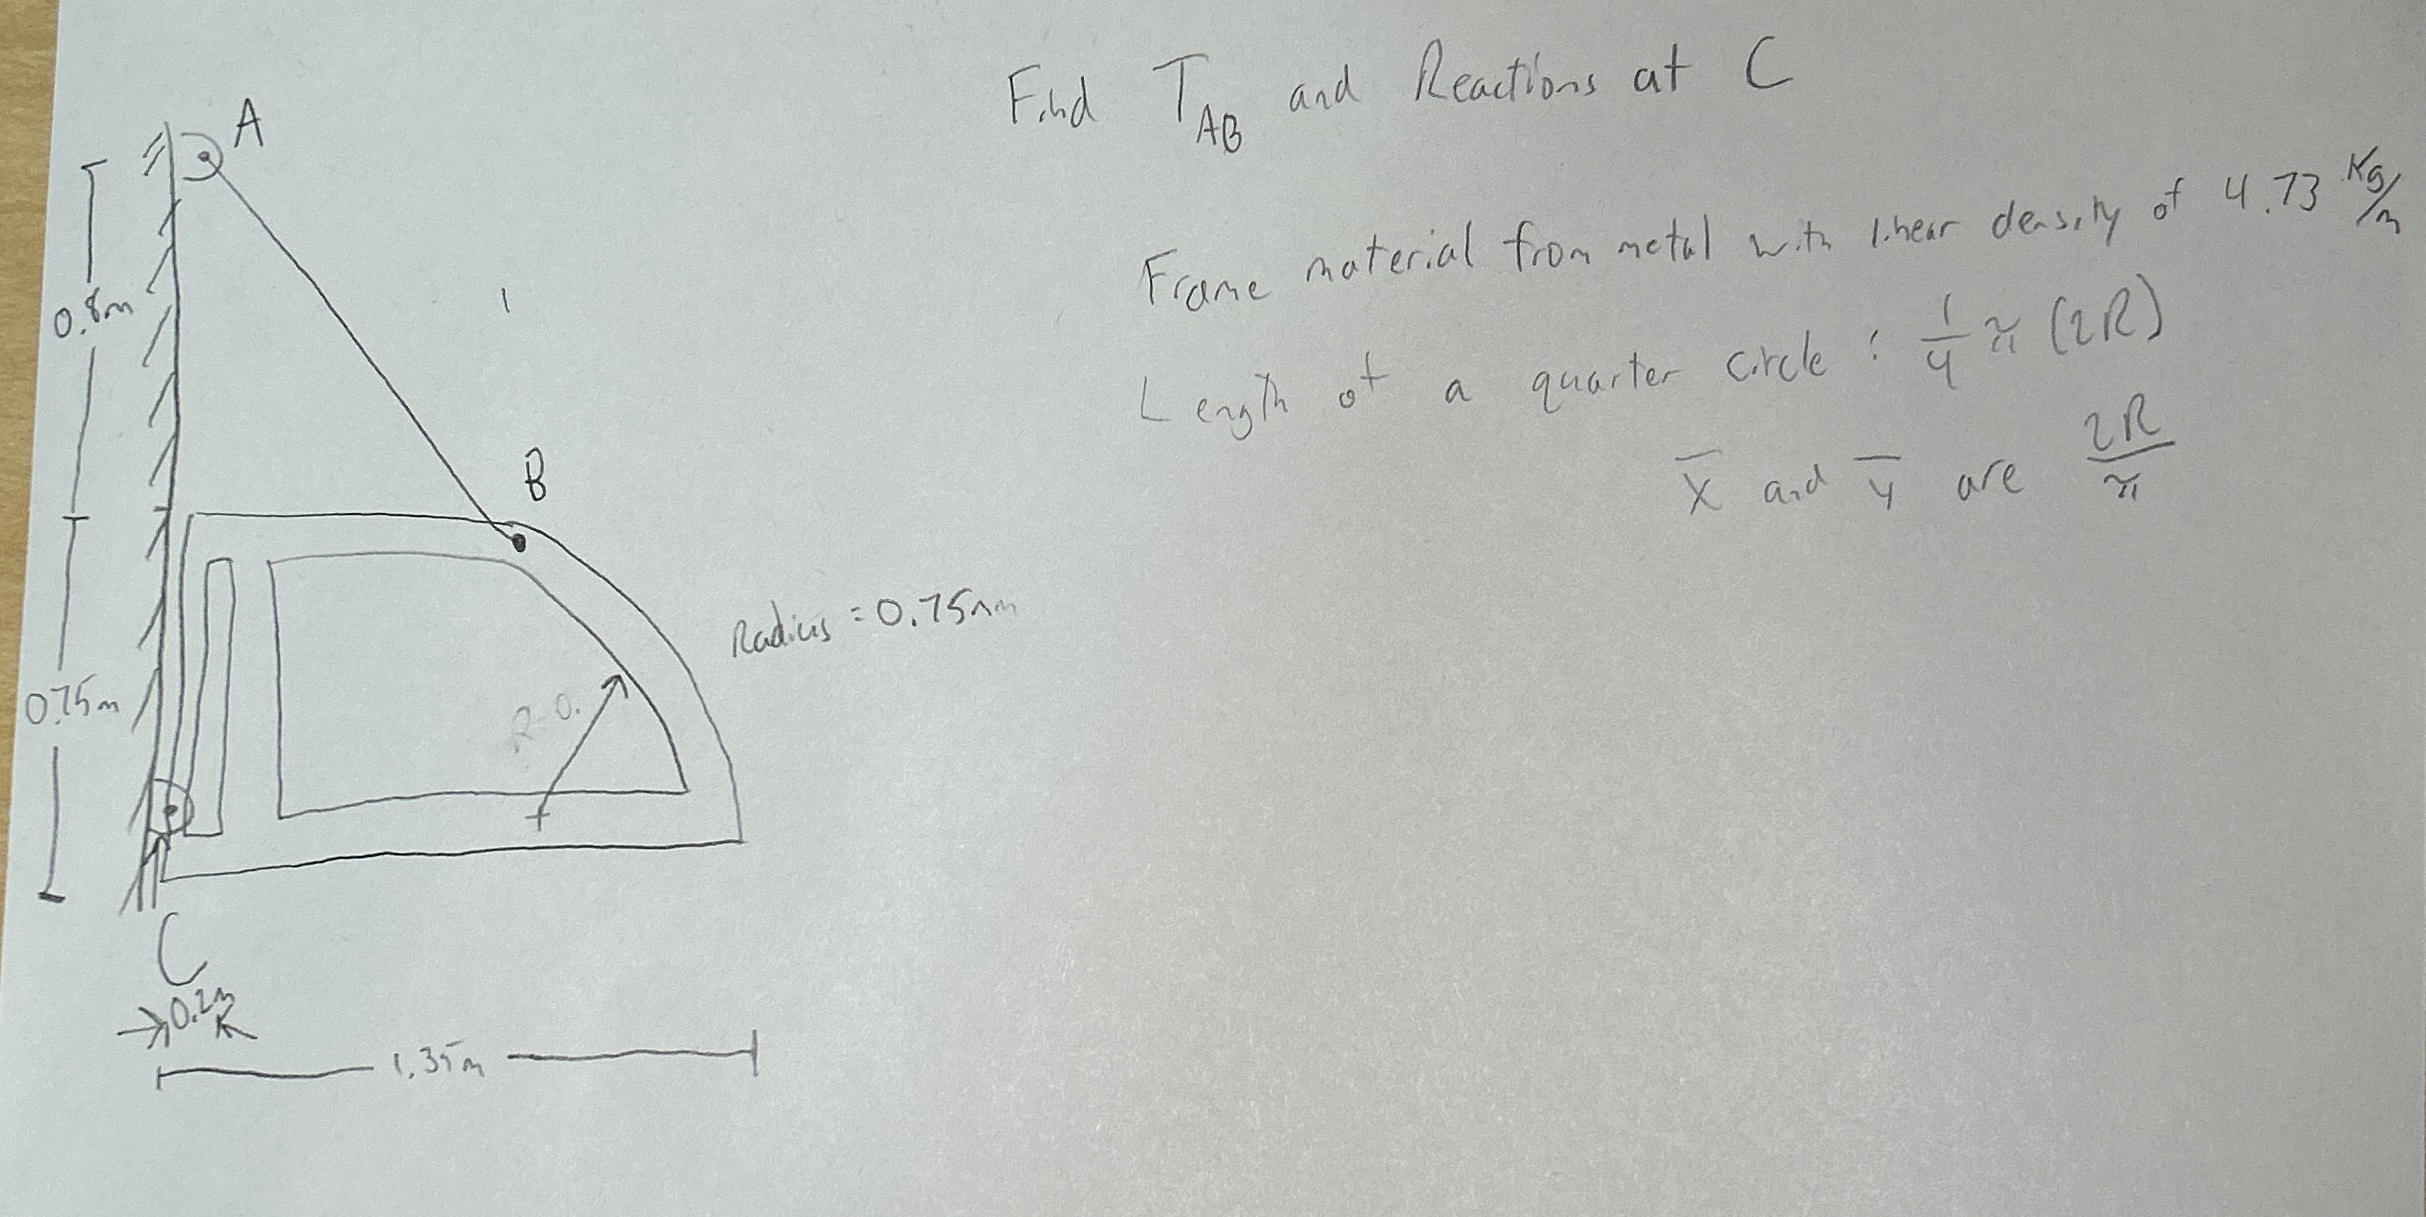 Find T_AB and Reactions at C
Frame material from metal with linear density of 4.73 Kg/m
Length of a quarter circle : 1/4 π (2R)
X̄ and ȳ are 2R/π
A
0.8m
B
Radius = 0.75m
R=0.
0.75m
C
0.2m
1.35m